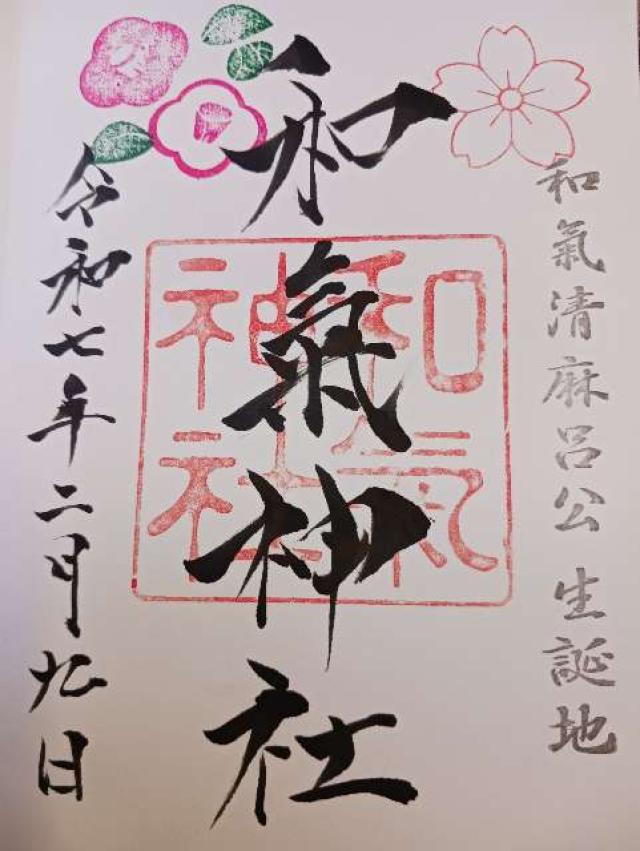 和氣清麻呂公 生誕地
和氣神社
和氣神社
令和七年二月九日